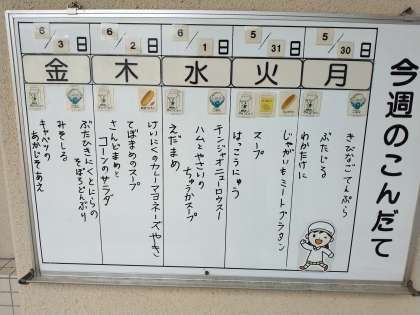 今週のこんだて
5/30日
月
きびなごてんぷら
ぶたじる
わかたけに
5/31日
火
じゃがいもミートグラタン
スープ
はっこうにゅう
6/1日
水
チンジャオニューロウスー
ハムとやさいの
ちゅうかスープ
えだまめ
6/2日
木
けいにくのカレーマヨネーズやき
てぼまめのスープ
さんどまめと
コーンのサラダ
6/3日
金
ぶたひきにくとにらの
そぼろどんぶり
みそしる
キャベツの
あかじそあえ